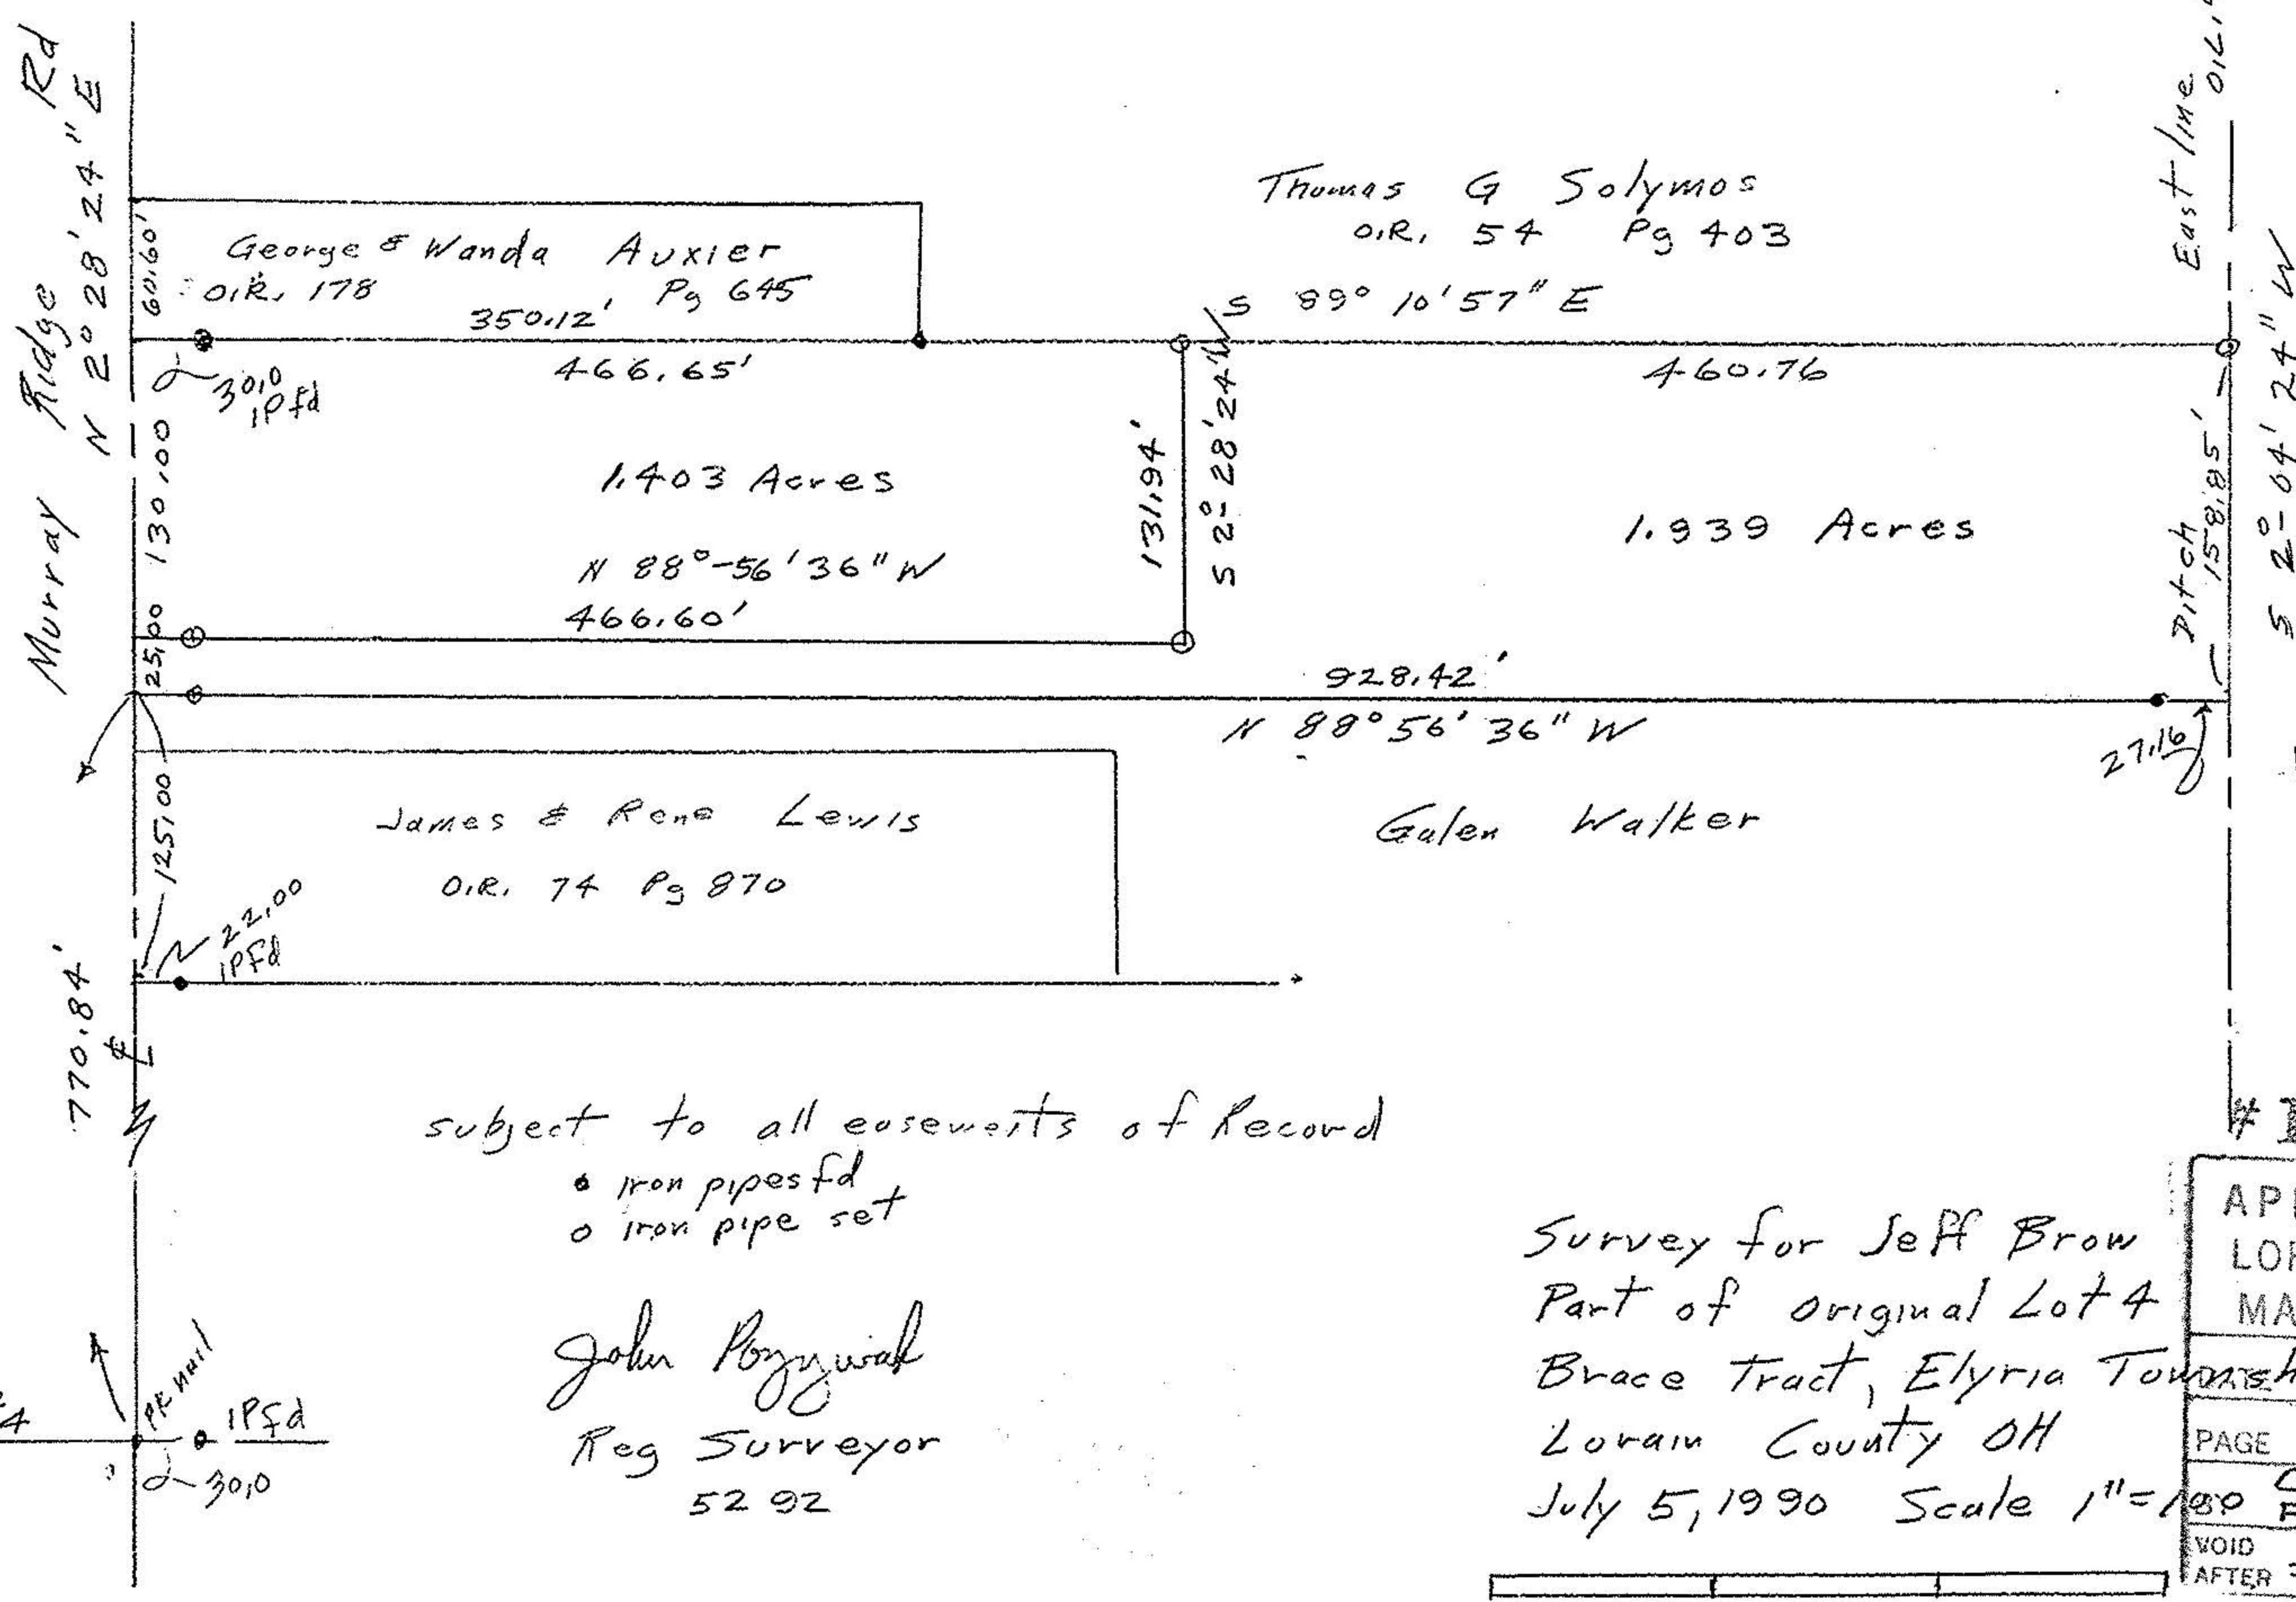 Murray Ridge Rd
N 2° 28' 24" E
60.60'
George & Wanda Auxier
O.R. 178 Pg 645
350.12'
Thomas G Solymos
O.R. 54 Pg 403
S 89° 10' 57" E
East line
30.0
IPfd
466.65'
460.76
130.00
1.403 Acres
N 88°-56'36" W
466.60'
131.94'
S 2°-28'24" W
1.939 Acres
Ditch
158.85'
S 2°-04' 24" W
25.00
928.42'
N 88° 56' 36" W
27.16
125.00
James & Rene Lewis
O.R. 74 Pg 870
Galen Walker
22.00
IPfd
770.84'
℄
subject to all easements of Record
iron pipes fd
iron pipe set
John Pozywak
Reg Surveyor
5292
PK nail
IPfd
30.0
4
Survey for Jeff Brow
Part of Original Lot 4
Brace Tract, Elyria Townsh
Lorain County OH
July 5, 1990 Scale 1"=100
#
AP
LO
MA
DATE
PAGE
VOID
AFTER